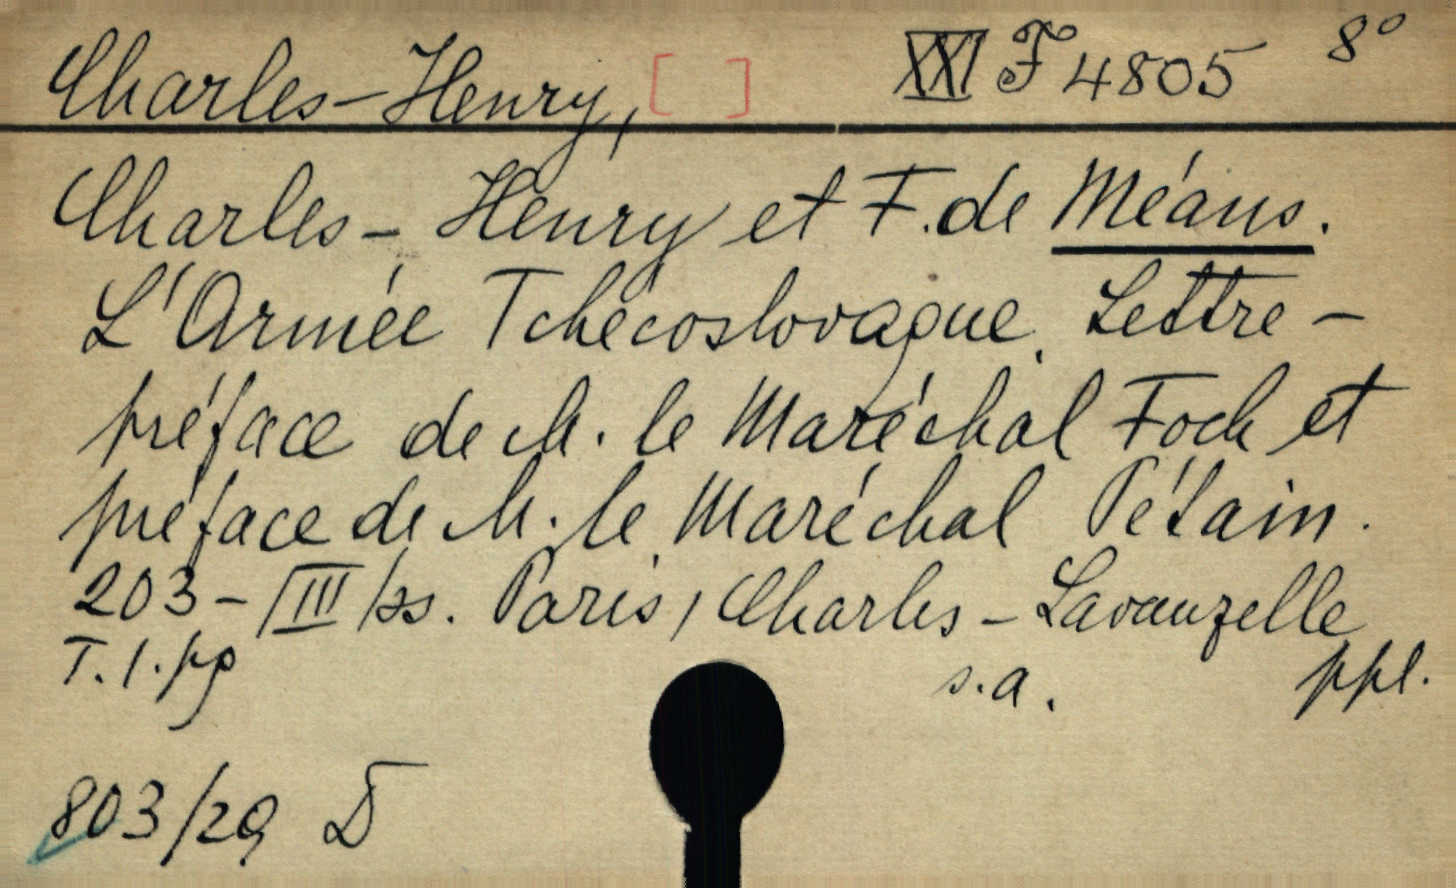 Charles-Henry, [ ] XXI F 4805 8°
Charles-Henry et F. de Méans.
L'Armée Tchécoslovaque. Lettre-
préface de M. le Maréchal Foch et
préface de M. le Maréchal Pétain.
203-III/ss. Paris, Charles-Lavauzelle
T. 1. pg s.a. ppl.
803/29 D